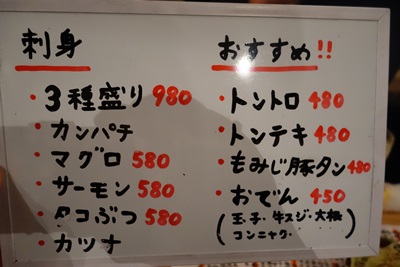 刺身
・3種盛り 980
・カンパチ
・マグロ 580
・サーモン 580
・タコぶつ 580
・カツナ
おすすめ!!
・トントロ 480
・トンテキ 480
・もみじ豚タン 480
・おでん 450
(玉子・牛スジ・大根
コンニャク・)